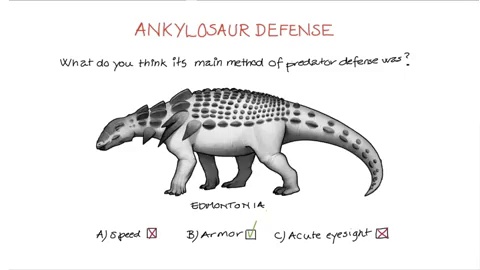 ANKYLOSAUR DEFENSE
What do you think its main method of predator defense was?
EDMONTONIA
A) Speed B) Armor C) Acute eyesight